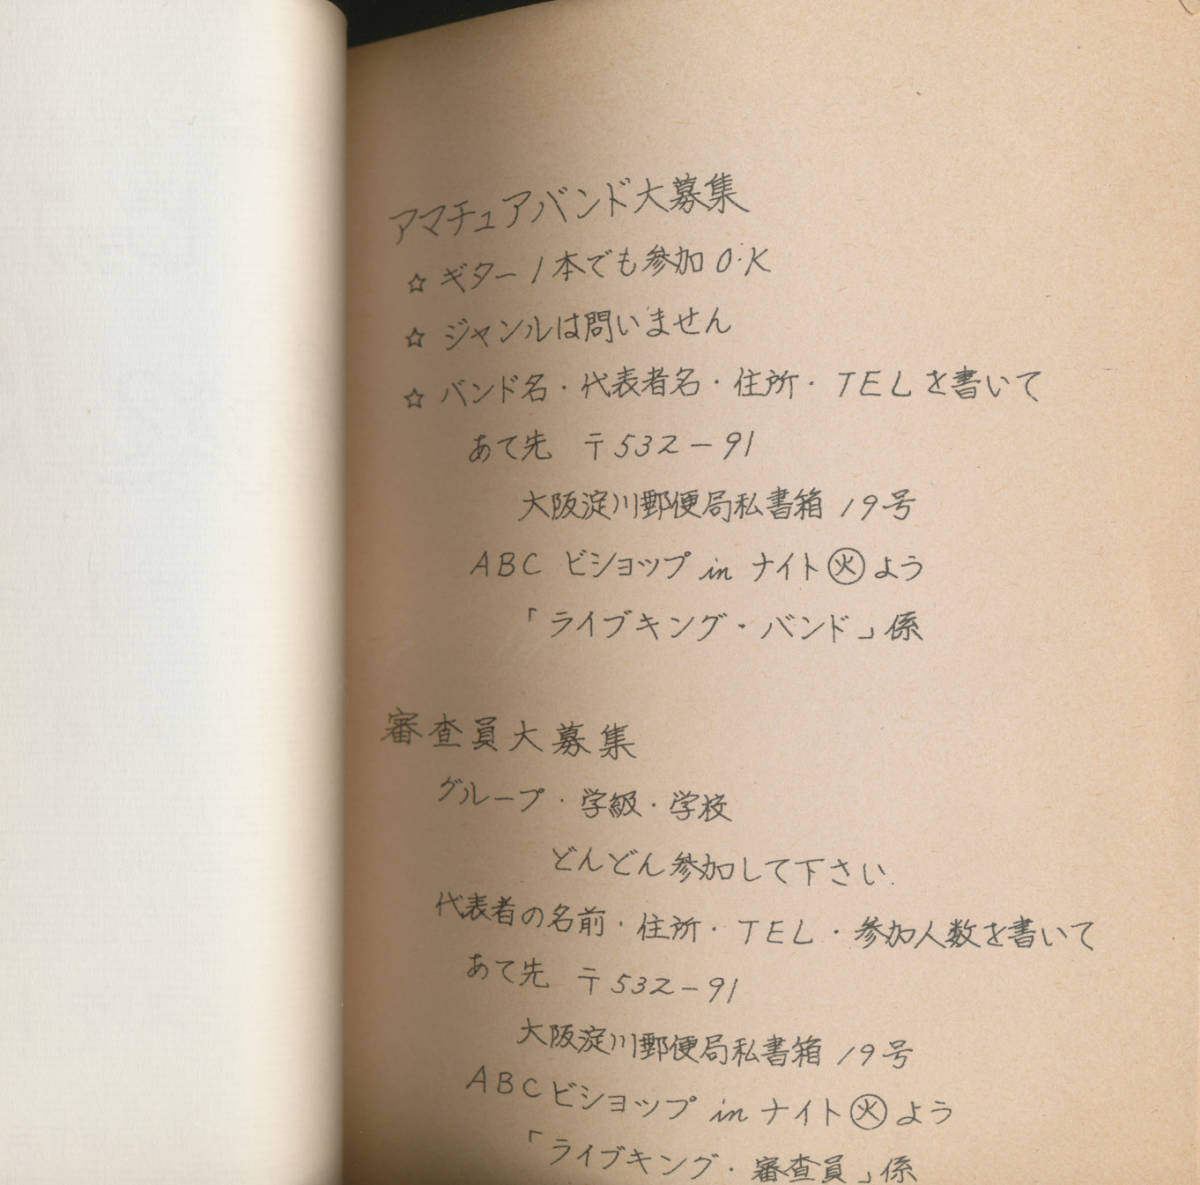 アマチュアバンド大募集
☆ ギター1本でも参加O.K
☆ ジャンルは問いません
☆ バンド名・代表者名・住所・TELを書いて
あて先 〒532-91
大阪淀川郵便局私書箱 19号
ABC ビショップ in ナイト㊋よう
「ライブキング・バンド」係
審査員大募集
グループ・学級・学校
どんどん参加して下さい.
代表者の名前・住所・TEL・参加人数を書いて
あて先 〒532-91
大阪淀川郵便局私書箱 19号
ABC ビショップ in ナイト㊋よう
「ライブキング・審査員」係